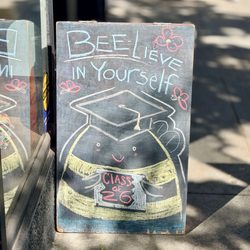 BEELieve
in Yourself
CLASS
of
26